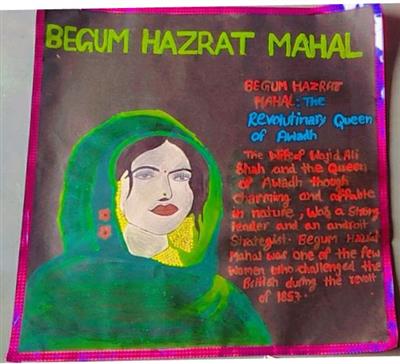 BEGUM HAZRAT MAHAL
BEGUM HAZRAT
MAHAL: The
Revolutinary Queen
of Awadh
The Wife of Wajid Ali
Shah and the Queen
of Awadh though
charming and affable
in nature, was a strong
leader and an android
Strategist. Begum Hazrat
Mahal was one of the few
Women who challenged the
British during the revolt
of 1857.